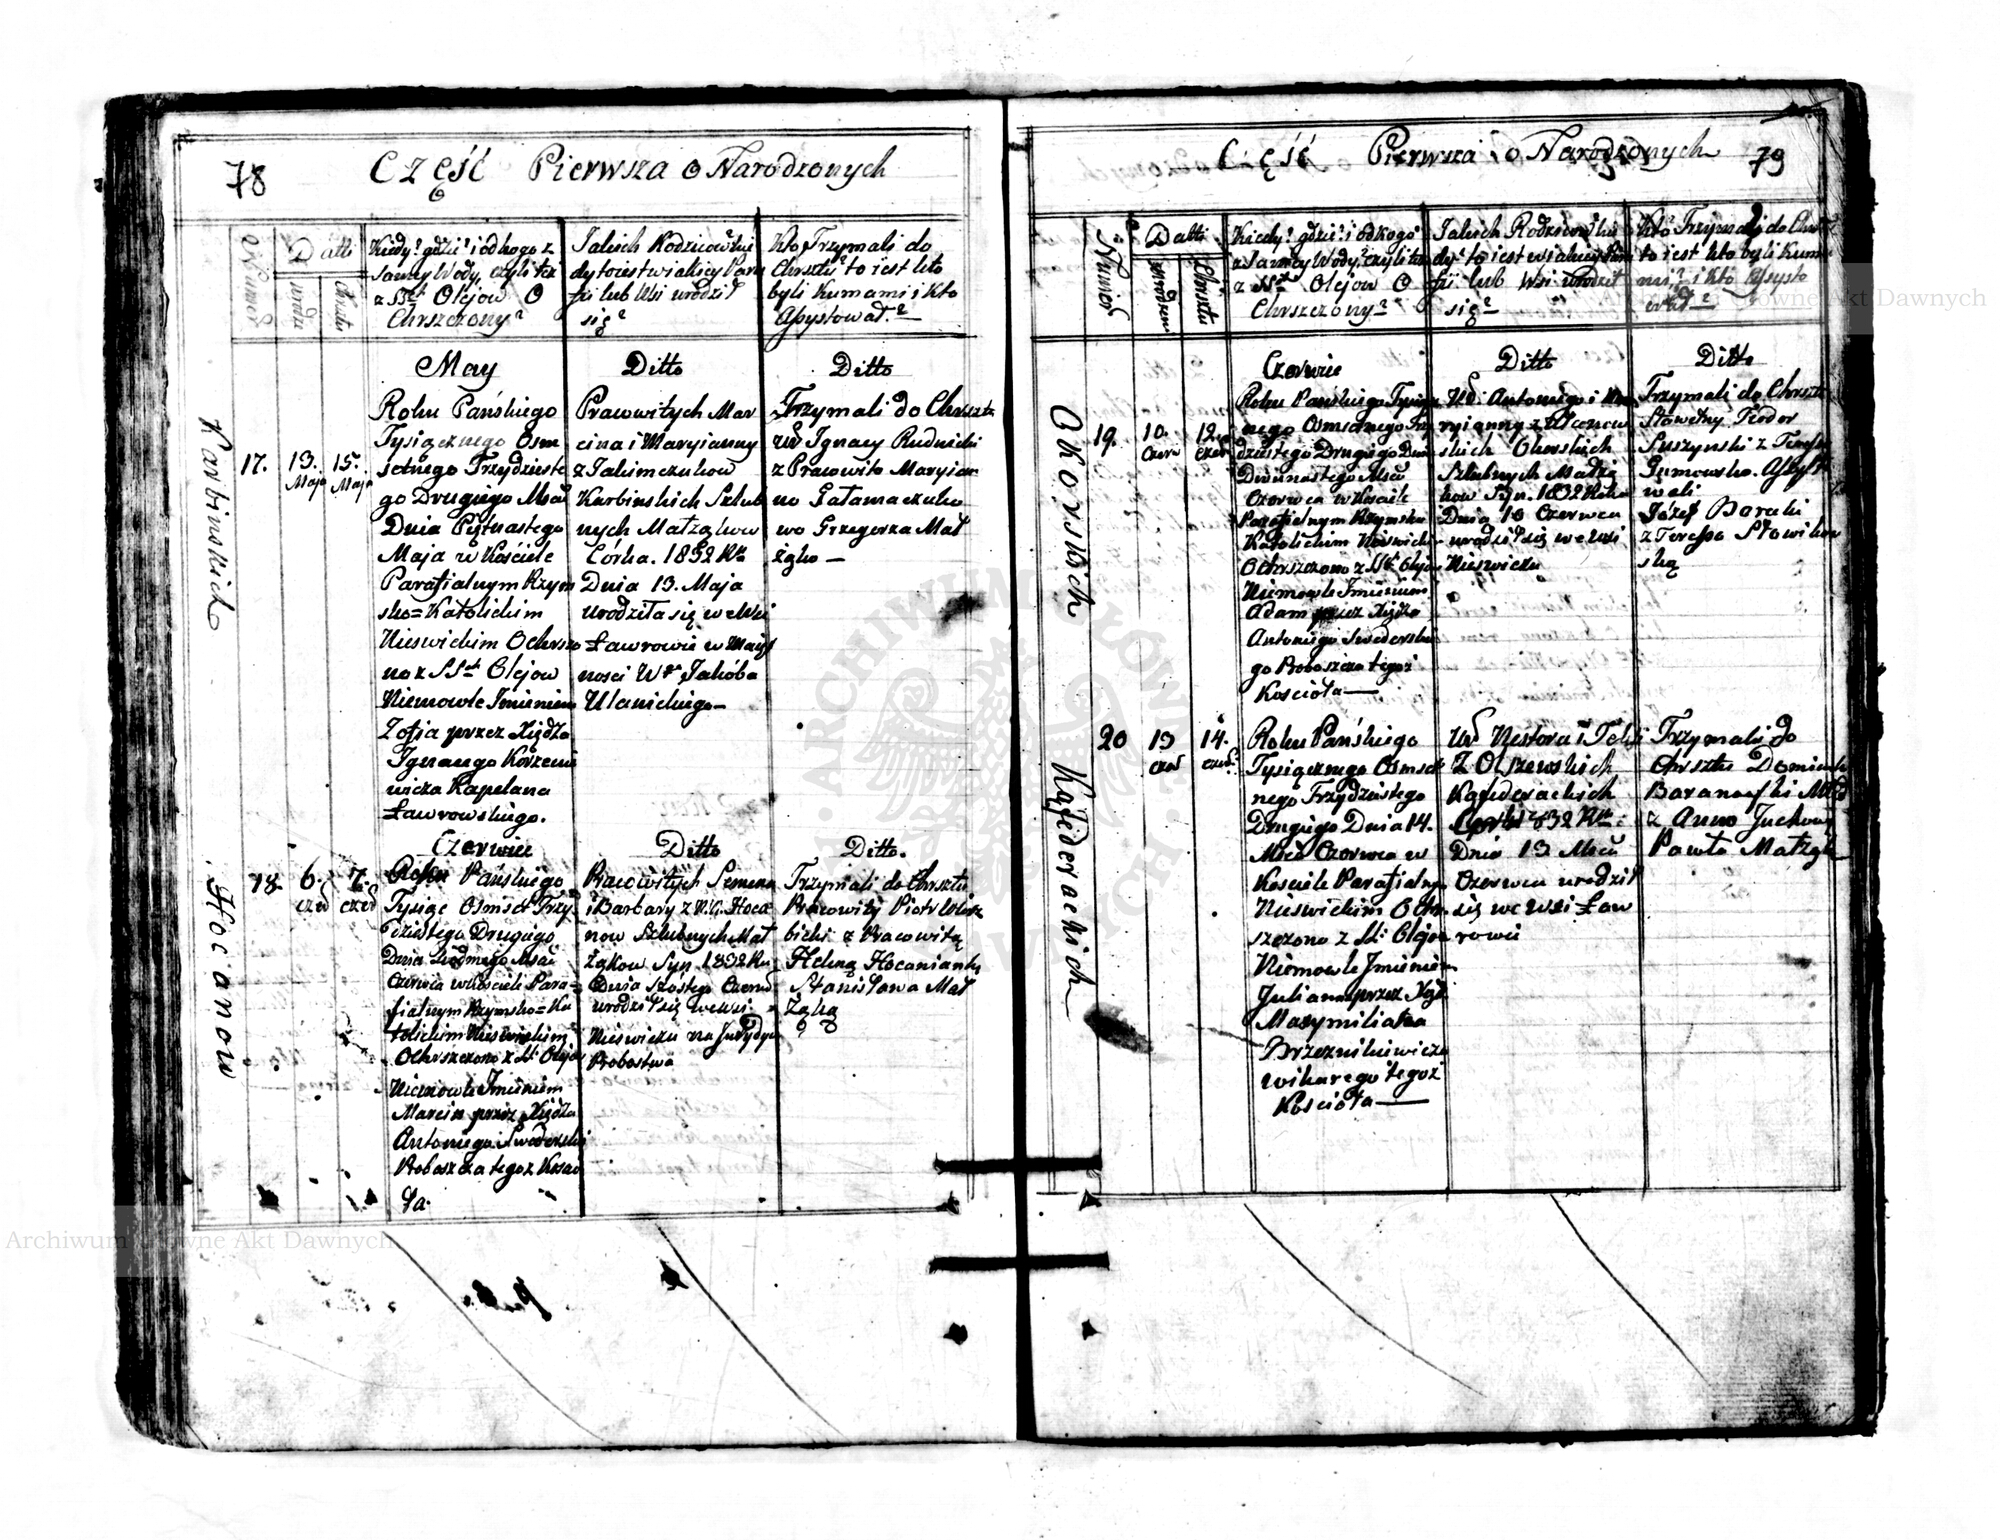 78 CZĘŚĆ Pierwsza o Narodzonych
Numer
Datti
urodz.
Chrztu
Kiedy? gdzie? i od kogo z
samey Wody, czyli też
z SSt. Olejow O
Chrszczony?
Jakich Rodziców kie
dy to iest w iakiey Para
fii lub Wsi urodził
się?
Kto Trzymali do
Chrsztu? to iest kto
byli Kumami i Kto
Assystował?
Karbinskich
17.
13.
Maja
15.
Maja
May
Roku Pańskiego
Tysiącznego Osm
setnego Trzydzieste
go Drugiego Msca
Dnia Pętnastego
Maja w Kościele
Parafialnym Rzym
sko=Katolickim
Nieswickim Ochrszo
no z SSt. Olejow
Niemowle Imieniem
Zofia przez Xiędza
Ignacego Korzenie
wicza Kapelana
Ławrowskiego.
Ditto
Pracowitych Mar
cina i Maryianny
z Jakimczukow
Karbinskich Szlub
nych Małżąkow
Córka. 1832 Rku
Dnia 13. Maja
urodziła się we Wsi
Ławrowie w Maięt
nosci Wo Jakóba
Ulanickiego
Ditto
Trzymali do Chrszt
Ur Ignacy Rudnicki
z Pracowito Maryian
no Patamaczuko
wo Grzegorza Mał
żąko
Hocanow
18.
6.
czer
7.
czer
Czerwiec
Roku Pańskiego
Tysiąc Osmset Trzy
dziestego Drugiego
Dnia Siodmego Msca
Czerwca w Kościele Para=
fialnym Rzymsko=Ka
tolickim Nieswickim
Ochrszczono z SSt. Olejow
Niemowle Imieniem
Marcin przez Xiędza
Antoniego Swiderski
Proboszcza tegoz Kosció
ła.
Ditto
Pracowitych Semena
i Barbary z N.N. Hoca
now Szlubnych Mał
żąkow Syn 1832 Ru
Dnia Szostego Czerw
urodził się we wsi
Nieswiczu na Jurydyce
Probostwa
Ditto.
Trzymali do Chrsztu
Pracowity Piotr Wierz
bicki z Pracowitą
Heleną Hocanianką
Stanisława Mał
żąką
CZĘŚĆ Pierwsza o Narodzonych 79
Numer
Datti
urodzen
Chrsztu
Kiedy? gdzie? i od kogo
z Samey Wody, czyli też
z SSt. Olejow O
Chrszczony?
Jakich Rodziców kie
dy? to iest w iakiey Para
fii lub Wsi urodził
się?
Kto Trzymali do Chrsz
to iest kto byli Kuma
mi? i kto Assysto
wał?
Okorskich
19.
10.
Czerw
12.
czer
Czerwiec
Roku Pańskiego Tysiąc
nego Osmsetnego Trzy
dziestego Drugiego Dnia
Dwunastego Msca
Czerwca w Kosciele
Parafialnym Rzymsko
Katolickim Nieswickim
Ochrszczono z SSt. Olejow
Niemowle Imieniem
Adam przez Xiędza
Antoniego Swiderskie
go Proboszcza tegoz
Kościoła
Ditto
Ur. Antoniego i Ma
ryianny z
skich Okorskich
Szlubnych Małżą
kow Syn. 1832 Roku
Dnia 10 Czerwca
urodził się we Wsi
Nieswiczu
Ditto
Trzymali do Chrszt
Sławetny Teodor
Suszynski z Teressą
Gumowsko. Assysto
wali
Józef Barcki
z Teressą Słowikow
ską
Kafiderackich
20
13
czer
14.
czer.
Roku Pańskiego
Tysiącznego Osmset
nego Trzydziestego
Drugiego Dnia 14.
Msca Czerwca w
Kosciele Parafialnym
Nieswickim Ochr
szczono z SSt. Olejow
Niemowle Imieniem
Julianna przez Xiędz
Maxymiliana
Brzeznikiewicza
wikarego tegoż
Kościoła
Ur Nestora i Tekli
Z Olszewskich
Kafiderackich
Corka 1832 Rku
Dnia 13 Msca
Czerwca urodził
się we Wsi Ław
rowie
Trzymali do
Chrsztu Dominik
Baranowski
z Anno Juckow
Pawła Małżąk